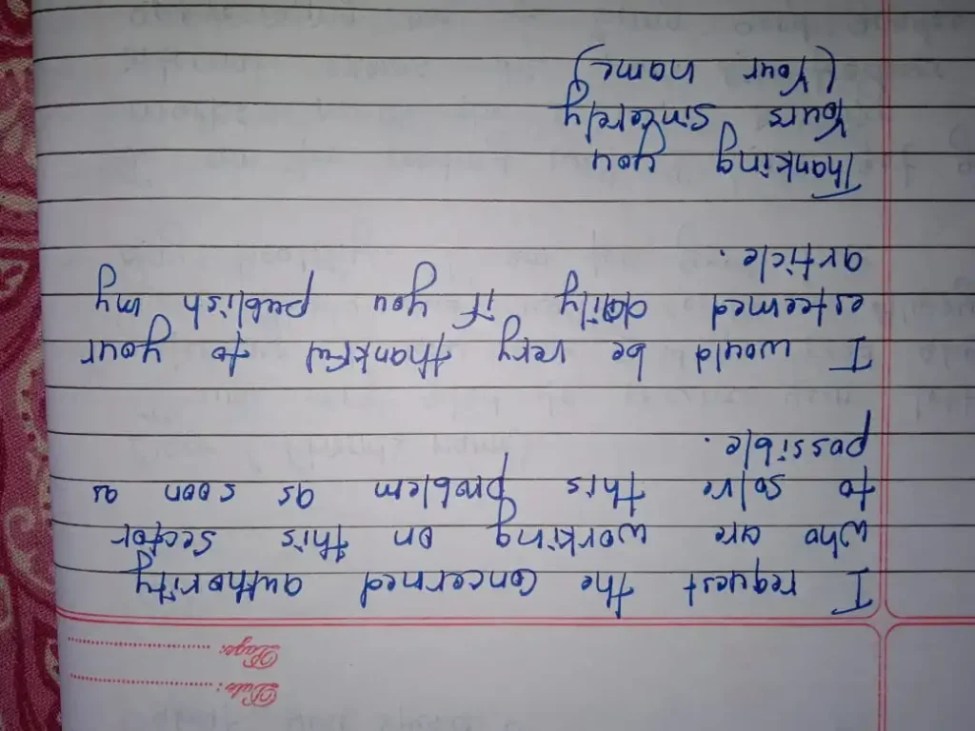 Date: ....................
Page: ....................
I request the concerned authority
who are working on this sector
to solve this problem as soon as
possible.
I would be very thankful to your
esteemed daily if you publish my
article.
Thanking you
Yours sincerely
(Your name)